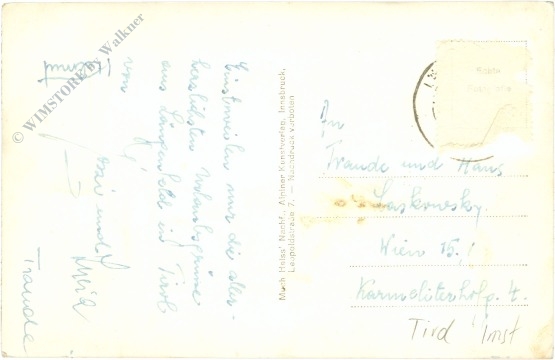 Einstweilen nur die aller-
herzlichsten Urlaubsgrüsse
aus Längenfeld in Tirol
von
und
Traude
Much Heiss' Nachf., Alpiner Kunstverlag, Innsbruck,
Leopoldstraße 7. — Nachdruck verboten
An
Traude und Hans
Laskowsky
Wien 15,
Karmeliterhofg. 4.
Tirol Imst
© WIMSTORE by Walkner